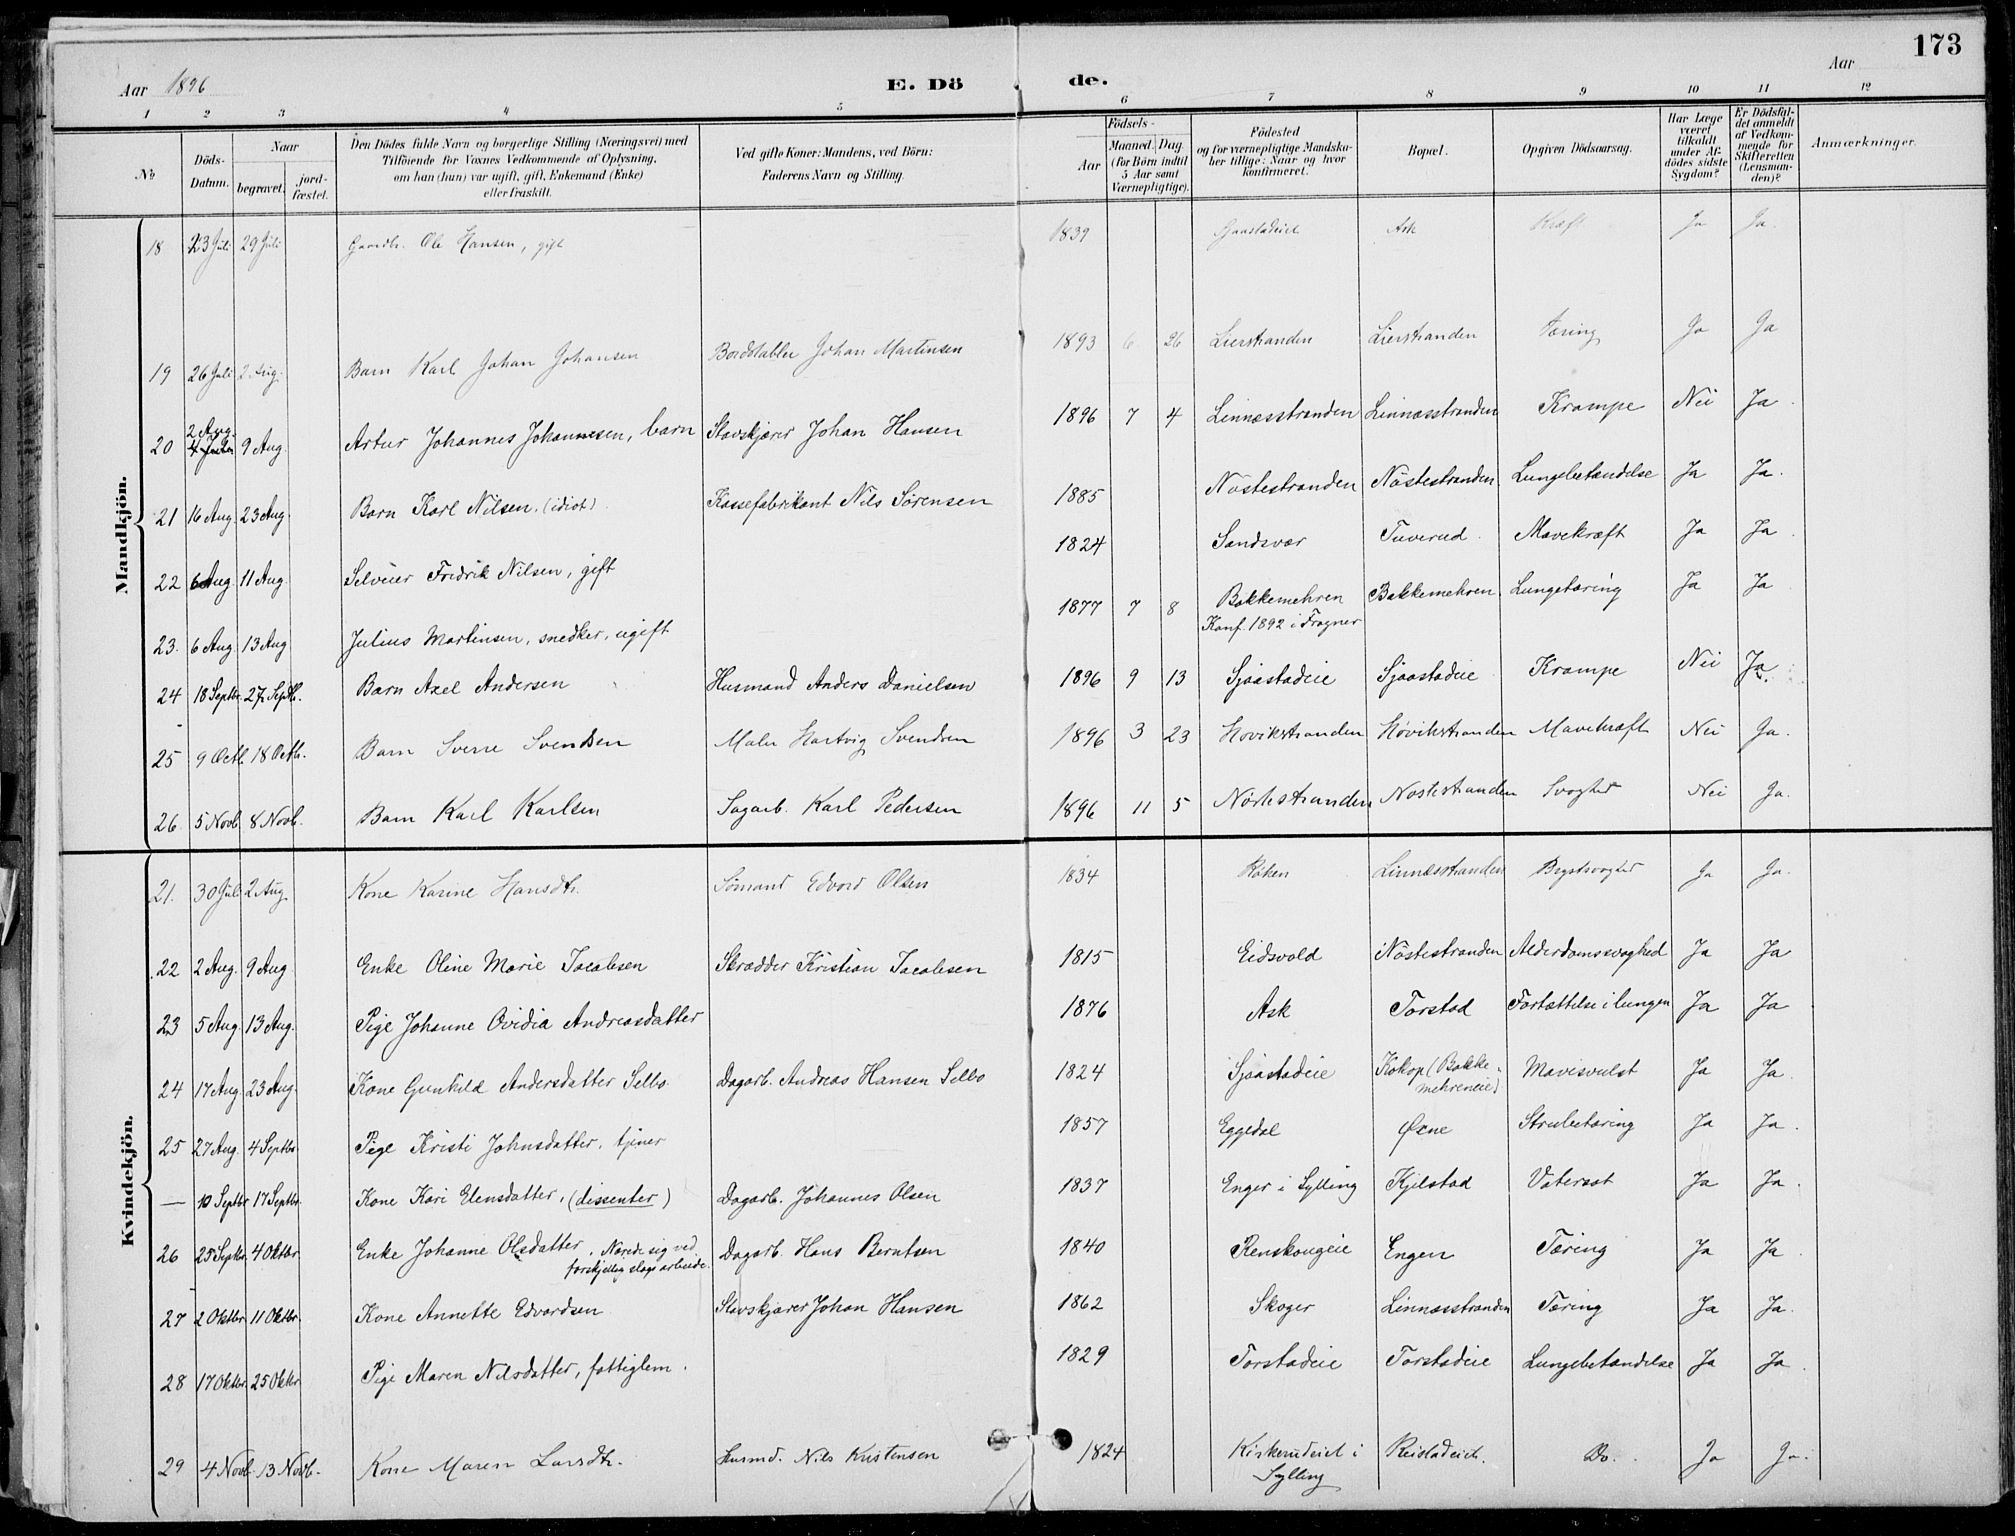 173
Aar 1896
E. Dö de.
Aar
1 2 3 4 5 6 7 8 9 10 11 12
No
Döds-Datum.
Naar
begravet.
jord-fæstet.
Den Dödes fulde Navn og borgerlige Stilling (Næringsvei) med
Tilföiende for Voxnes Vedkommende af Oplysning,
om han (hun) var ugift, gift, Enkemand (Enke)
eller fraskilt.
Ved gifte Koner: Mandens, ved Börn:
Faderens Navn og Stilling.
Födsels-
Aar
Maaned. Dag.
(for Börn indtil
5 Aar samt
Værnepligtige).
Födested
og for værnepligtige Mandska-
ber tillige: Naar og hvor
konfirmeret.
Bopæl.
Opgiven Dödsaarsag.
Har Læge
været
tilkaldt
under Af-
dödes sidste
Sygdom?
Er Dödsfal-
det anmeldt
af Vedkom-
mende for
Skifteretten
(Lensman-
den)?
Anmærkninger.
Mandkjön.
18 23 Juli 29 Juli Gaardbr. Ole Hansen, gift 1839 Ask Kræft Ja Ja.
19 26 Juli 2 Aug. Barn Karl Johan Johansen Johan Martinsen 1893 6 26 Lierstranden Lierstranden Tæring Ja Ja
20 2 Aug. 9 Aug. Artur Johannes Johannesen, barn Stavskjærer Johan Hansen 1896 7 4 Linnæsstranden Linnæsstranden Krampe Nei Ja
21 16 Aug. 23 Aug. Barn Karl Nilsen. (idiot) Kassefabrikant Nils Sörensen 1885 Nöstestranden Nöstestranden Lungebetændelse Ja Ja.
22 6 Aug. 11 Aug. Selveier Fredrik Nilsen, gift 1824 Sandsvær Tuverud. Mavekræft Ja Ja
23. 6 Aug. 13 Aug Julius Martinsen, snedker, ugift 1877 7 8 Bakkemehren Bakkemehren Lungetæring Ja Ja
Konf. 1892 i Frogner
24 18 Septbr. 27 Septb. Barn Axel Andersen Husmand Anders Danielsen 1896 9 13 Sjaastadeie Sjaastadeie Krampe Nei Ja.
25 9 Octb. 18 Octb. Barn Sverre Svendsen Maler Hartvig Svendsen 1896 3 23 Høvikstranden Høvikstranden Mavekræft Nei Ja.
26. 5 Novb. 8 Novb. Barn Karl Karlsen Sagarb. Karl Pedersen 1896 11 5 Nöstestranden Nöstestranden Svaghed Nei Ja.
Kvindekjön.
21. 30 Juli 2 Aug. Kone Karine Hansdtr. Sömand Edvard Olsen 1834 Röken Linnæsstranden Ja Ja.
22 2 Aug. 9 Aug. Enke Oline Marie Jacobsen Skrædder Kristian Jacobsen 1815 Eidsvold Nöstestranden Alderdomssvaghed Ja Ja
23 5 Aug. 13 Aug. Pige Johanne Ovidia Andreasdatter 1876 Ask Torstad Fortættelse i lungen Ja Ja
24 17 Aug. 23 Aug. Kone Gunhild Andersdatter Selbo Dagarb. Andreas Hansen Selbo 1824 Sjaastadeie Kokop (Bakke-
mehreneie) Mavesvulst Ja Ja.
25 27 Aug. 4 Septbr. Pige Kristi Johnsdatter, tjener 1857 Eggedal Øxne Strubetæring Ja Ja.
— 10 Septbr. 17 Septbr. Kone Kari Elensdatter, (dissenter) Dagarb. Johannes Olsen 1837 Enger i Sylling Kjelstad Vatersot Ja Ja.
26 25 Septbr. 4 Oktbr. Enke Johanne Olsdatter. Nærede sig ved
forskjellig slags arbeide. Dagarb. Hans Berntsen 1840 Renskougeie Engen Tæring Ja Ja.
27 2 Oktbr. 11 Oktbr. Kone Annette Edvardsen Stavskjærer Johan Hansen 1862 Skoger Linnæsstranden Tæring Ja Ja.
28 17 Oktbr. 25 Oktbr. Pige Maren Nilsdatter, fattiglem. 1829 Torstadeie Torstadeie Lungebetændelse Ja Ja.
29 4 Novb. 13 Novb. Kone Maren Larsdtr. Husmd. Nils Kristensen 1824 Kirkerudeiet i
Sylling Reistadeiet. Do. Ja Ja.